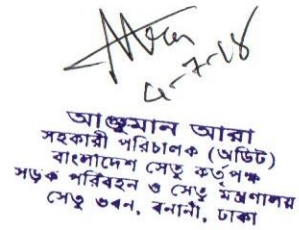 ৫-7-18
আঞ্জুমান আরা
সহকারী পরিচালক (অডিট)
বাংলাদেশ সেতু কর্তৃপক্ষ
সড়ক পরিবহন ও সেতু মন্ত্রণালয়
সেতু ভবন, বনানী, ঢাকা